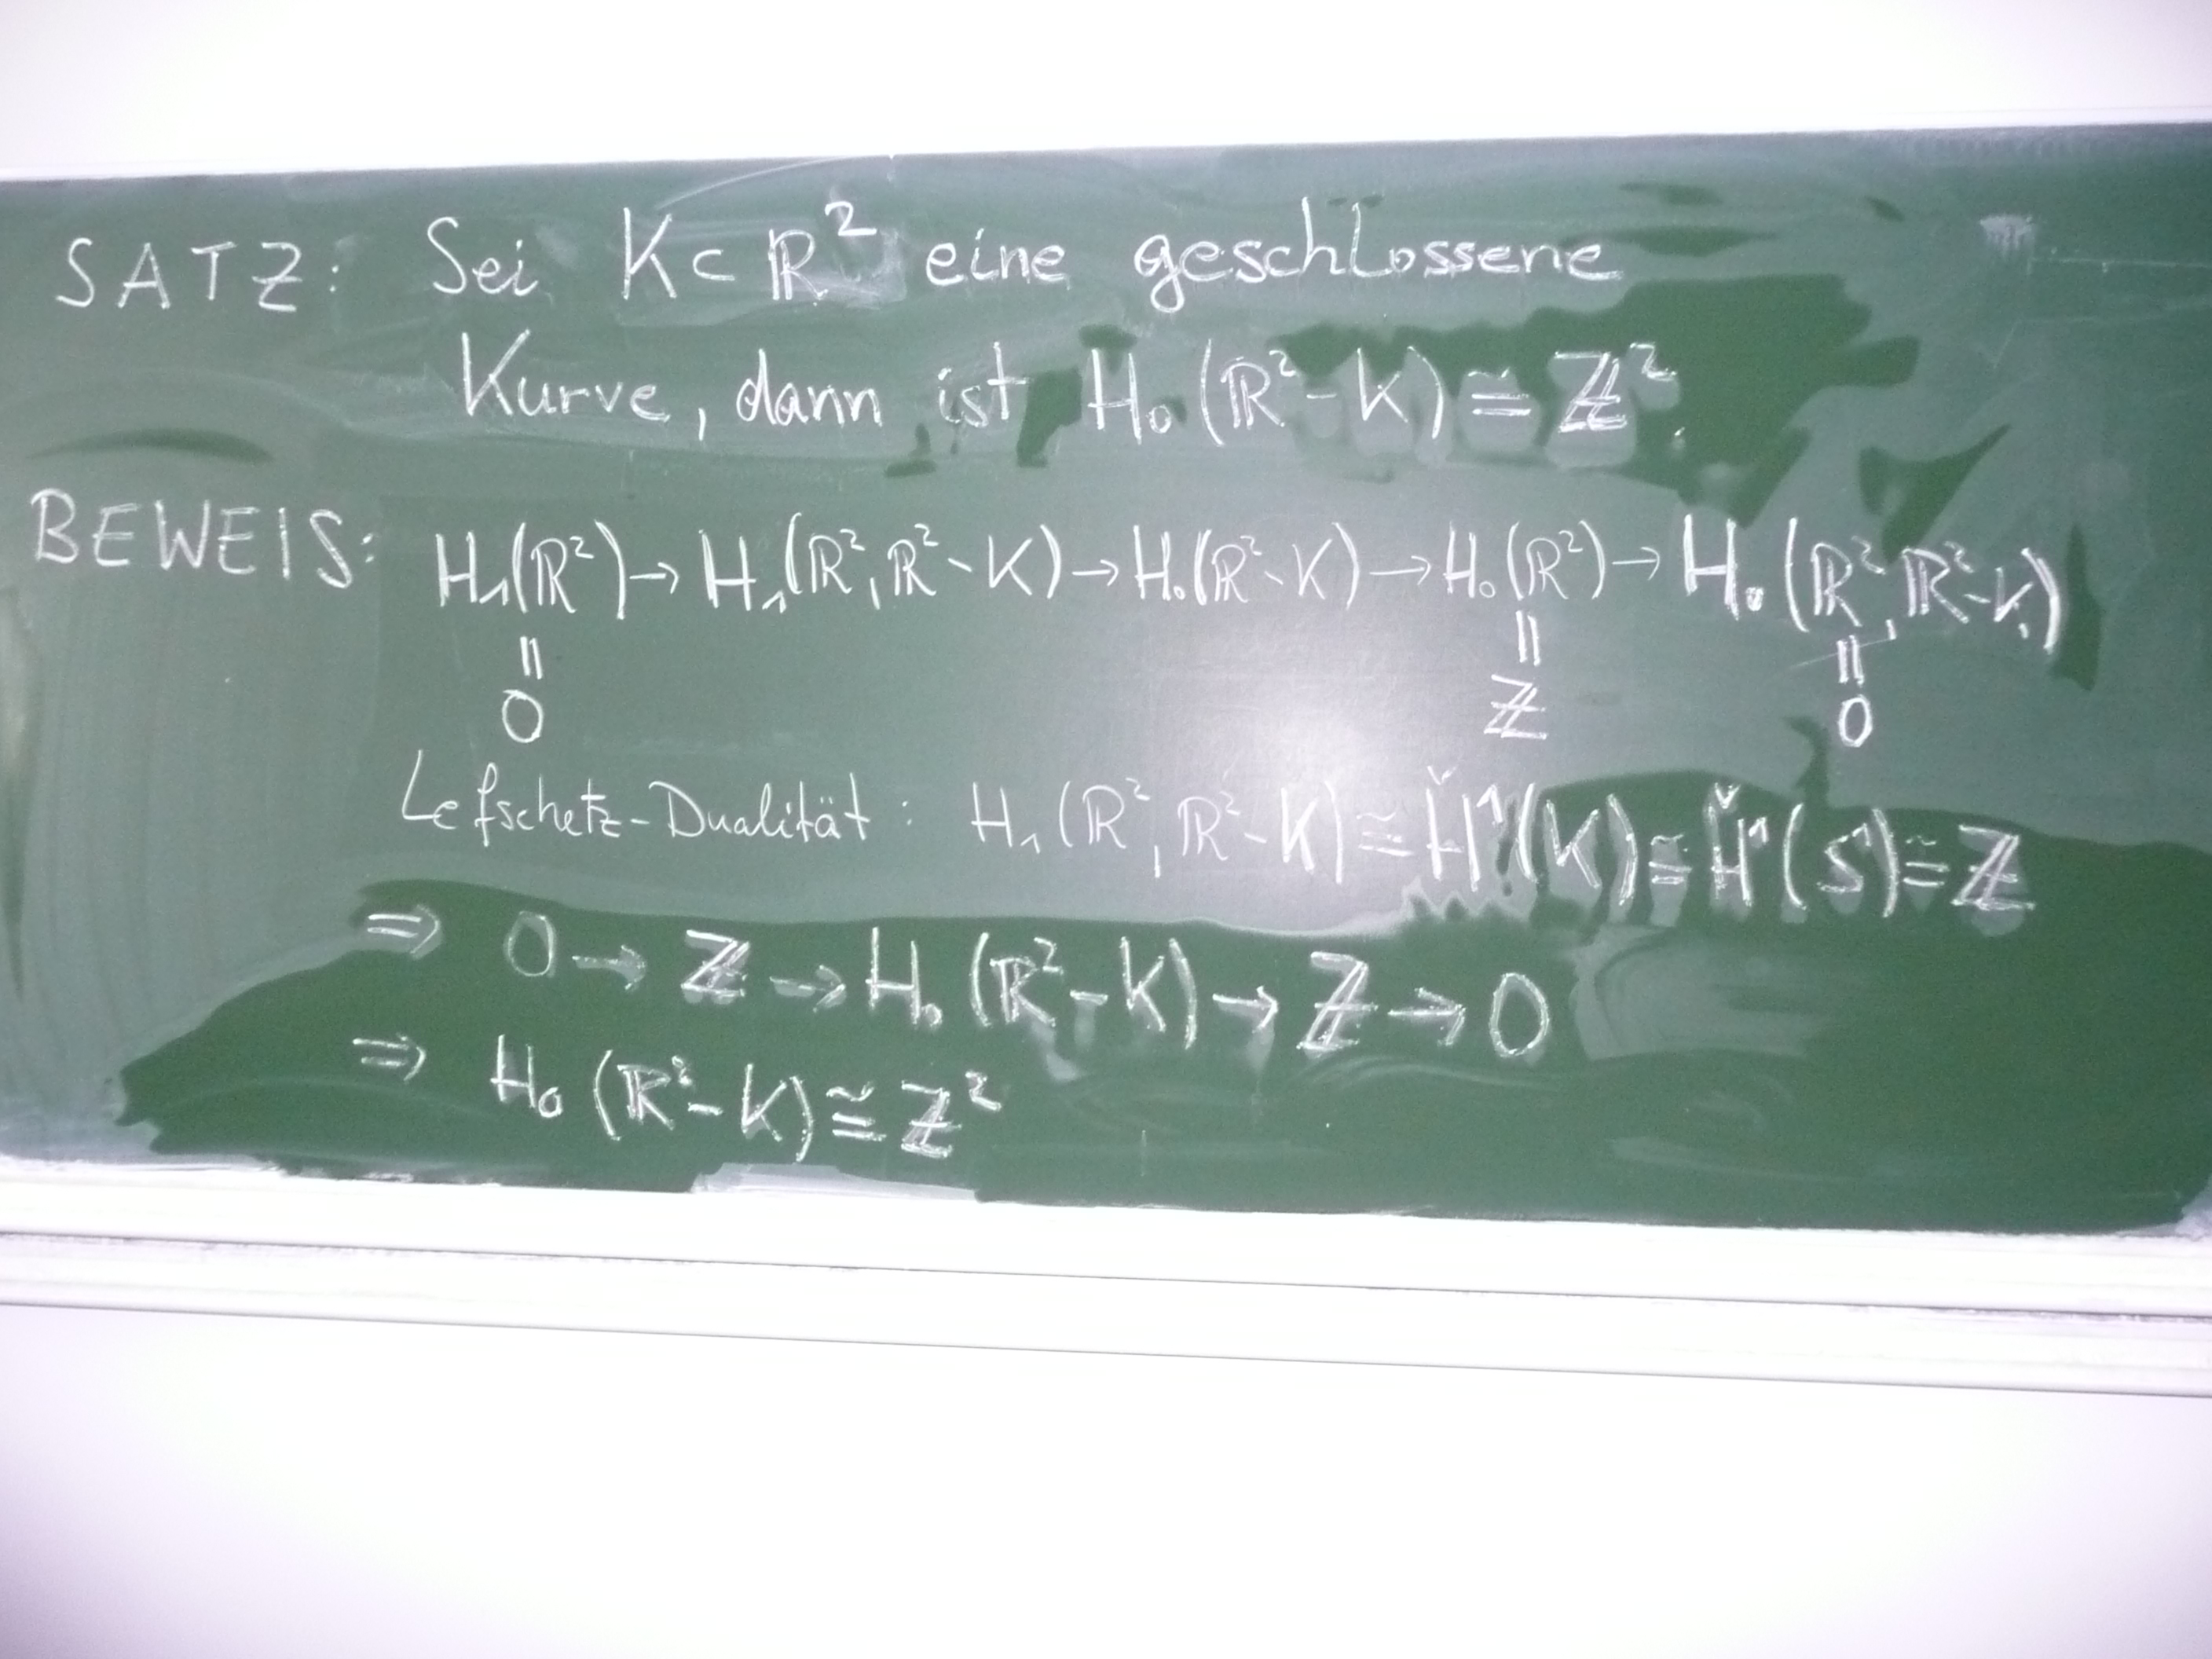 SATZ: Sei K ⊂ ℝ² eine geschlossene
Kurve, dann ist H₀(ℝ²-K) ≅ ℤ².
BEWEIS: H₁(ℝ²) → H₁(ℝ², ℝ²-K) → H₀(ℝ²-K) → H₀(ℝ²) → H₀(ℝ², ℝ²-K)
|| || ||
0 ℤ 0
Lefschetz-Dualität: H₁(ℝ², ℝ²-K) ≅ Ȟ¹(K) ≅ Ȟ¹(S¹) ≅ ℤ
⇒ 0 → ℤ → H₀(ℝ²-K) → ℤ → 0
⇒ H₀(ℝ²-K) ≅ ℤ²